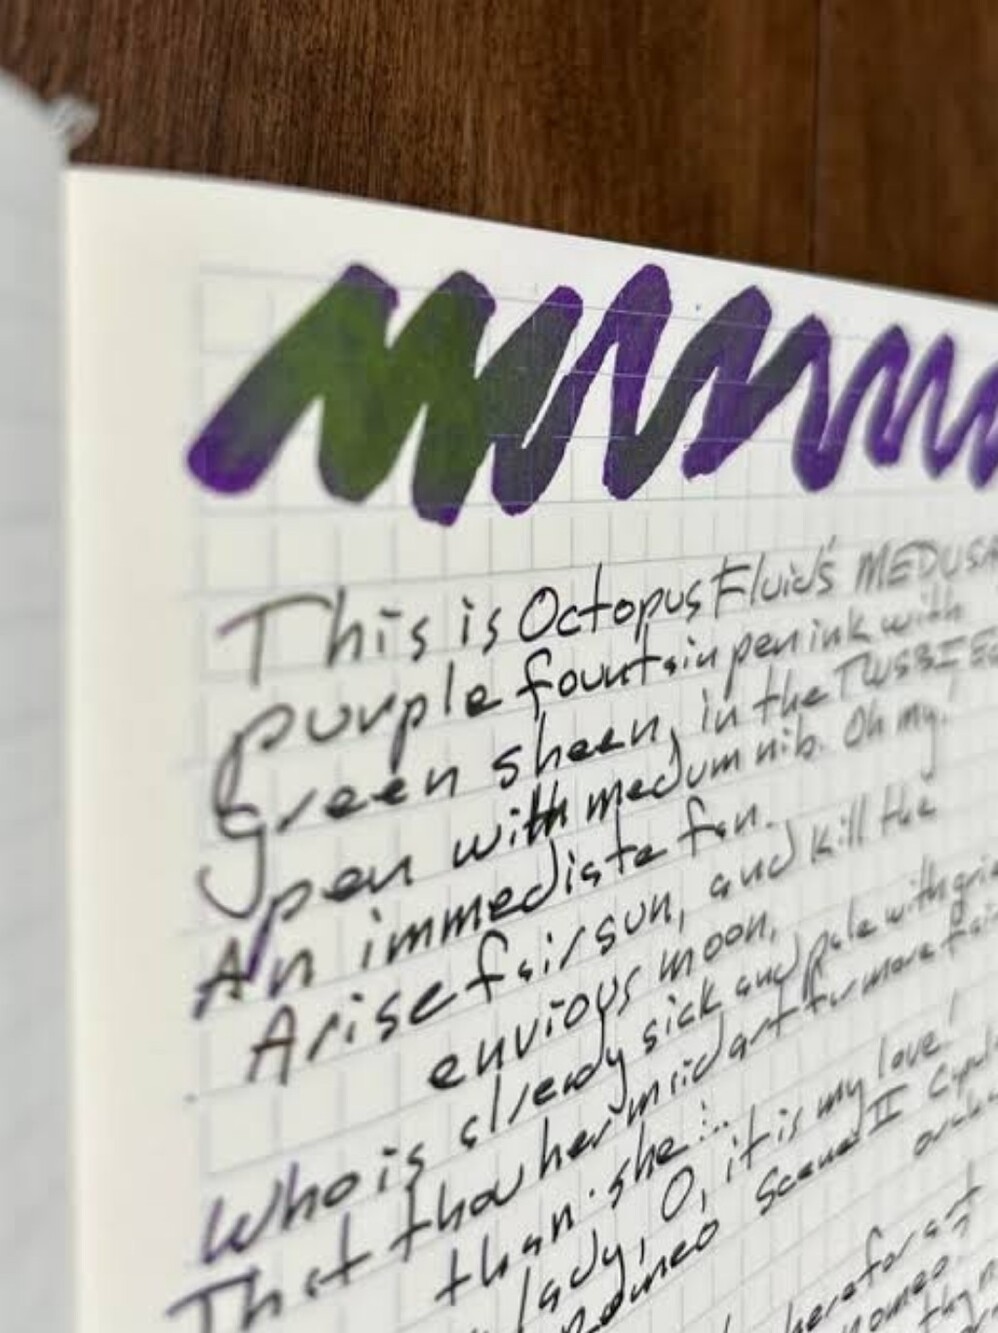 This is Octopus Fluids MEDUSA
purple fountain pen ink with
Green sheen, in the TWSBI ECO
pen with medium nib. Oh my!
An immediate fan.
Arise fair sun, and kill the
envious moon,
Who is already sick and pale with grie
That thou her maid art far more fair
than she:..
lady, O, it is my love!
Romeo Scene II Capul
orcha